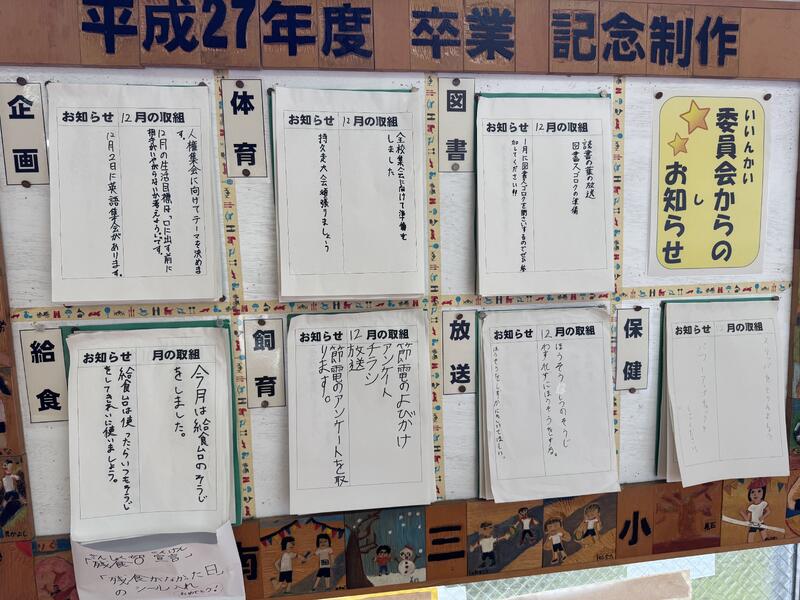 平成27年度 卒業 記念制作
企画
お知らせ 12月の取組
人権集会に向けてテーマを決めます。
12月の生活目標は「口に出す前に
相手がいやがらないか考えよう」です。
12月2日に英語集会があります。
体育
お知らせ 12月の取組
全校集会に向けて準備を
しました
持久走大会頑張りましょう
図書
お知らせ 12月の取組
読書の葉の放送
図書スゴロクの準備
1月に図書スゴロクを開さいするのでぜひ参
加してください!!
いいんかい
委員会からの
し
お知らせ
給食
お知らせ 月の取組
今月は給食台のそうじ
をしました。
給食台は使ったらいつもそうじ
をしてきれいに使いましょう。
飼育
お知らせ 12月の取組
節電のよびかけ
アンケート
チラシ
放送
節電のアンケートを取
ります。
放送
お知らせ 12月の取組
ほうそうしつのそうじ
わすれずにほうそうをする。
保健
お知らせ 月の取組
宣言
「残食がなかった日
のシール入れ
南三小